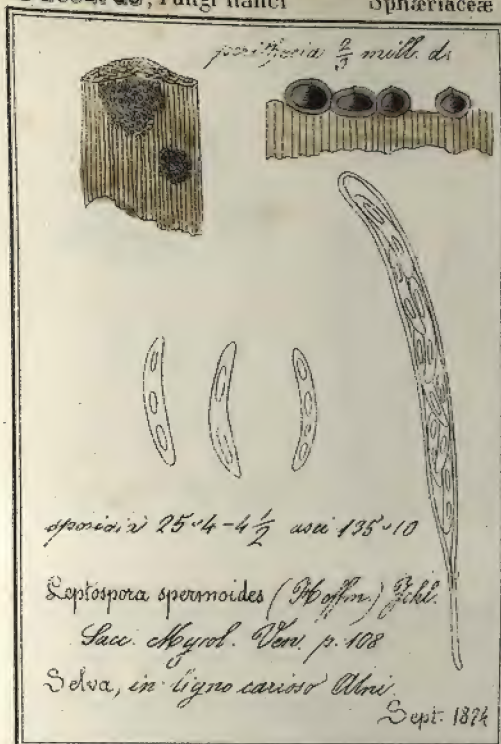 Fungi italici Sphæriaceæ
perithecia 2/3 mill. d.
sporidia 25 × 4-4 1/2 asci 135 × 10
Leptospora spermoides (Hoffm.) Fckl.
Sacc. Mycol. Ven. p. 108
Selva, in ligno carioso Alni.
Sept. 1874